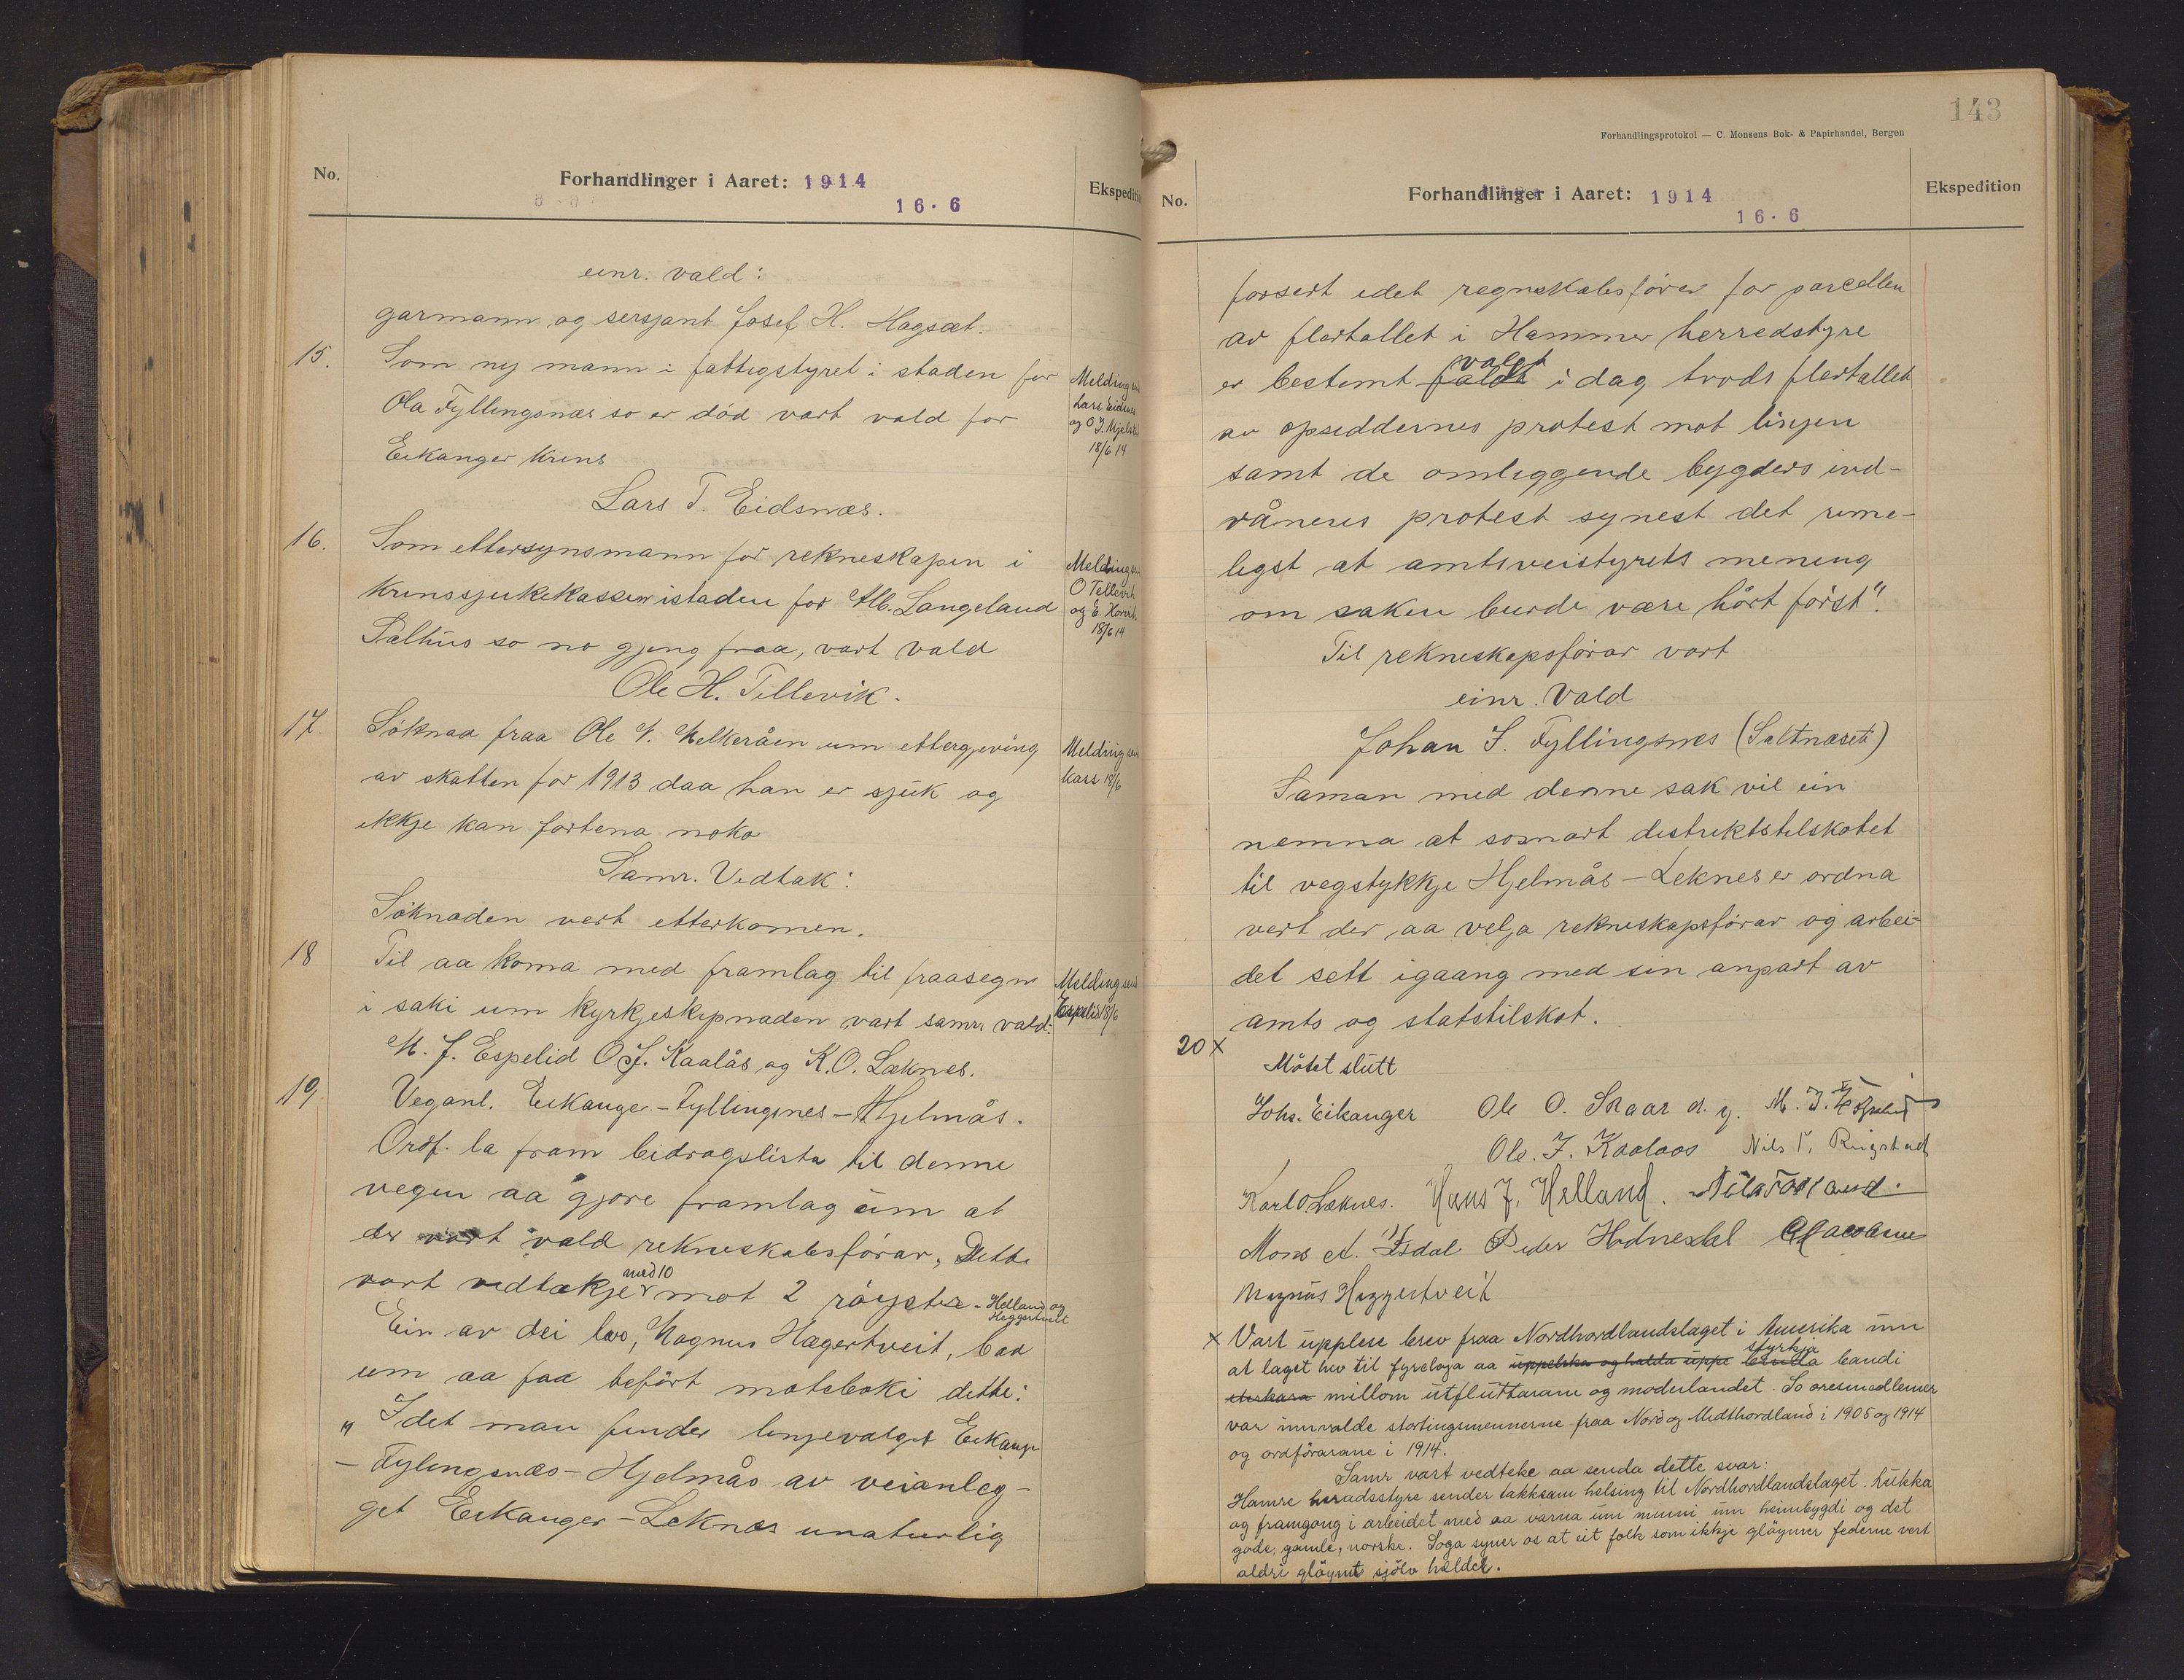 No.
Forhandlinger i Aaret: 1914
16.6
Ekspediti
einr. vald:
garmann og sersjant Josef H. Hagsæt.
15.
Som ny mann i fattigstyret i staden for
Ola Fyllingsnæs so er död vart vald for
Eikanger krins
Lars T. Eidsnæs.
Melding
Lars Eidsnes
og O. J. Mjelst
18/6 14
16.
Som ettersynsmann for rekneskapen i
krinssjukekassen istaden for Alb. Langeland
Salhus so no gjeng fraa, vart vald
Ole H. Tellevik.
Melding
O Tellevik
og E. Horvik
18/6 14
17.
Söknad fraa Ole V. Helkeråen um ettergjeving
av skatten for 1913 daa han er sjuk og
ikkje kan fortena noko
Samr. Vedtak:
Söknaden vert etterkomen.
Melding
kass 18/6
18
Til aa koma med framlag til fraasegn
i saki um kyrkjeskipnaden vart samr. vald:
M. J. Espelid O. J. Kaalås og K. O. Læknes.
Melding send
Espelid 18/6
19.
Veganl. Eikange-Fyllingsnes-Hjelmås.
Ordf. la fram bidragslista til denne
vegen aa gjore framlag um at
der vart vald rekneskabsförar. Dette
vart vedtekje med 10 mot 2 röyster - Helland og Heggertveit
Ein av dei two, Magnus Hægertveit, bad
um aa faa befört moteboki dette:
"Idet man finder linjevalget Eikange
- Fylingsnæs - Hjelmås av veianleg-
get Eikanger - Leknes unaturlig
143
Forhandlingsprotokol — C. Monsens Bok- & Papirhandel, Bergen
No.
Forhandlinger i Aaret: 1914
16.6
Ekspedition
forsert idet regnskabsförer for parcellen
av flertallet i Hammer herredstyre
er bestemt faldt valgt i dag trods flertallet
av opsiddernes protest mot linjen
samt de omliggende bygders ind-
våneres protest synest det rime-
ligst at amtsveistyrets mening
om saken burde være hört först".
Til rekneskapsförar vart
einr. vald
Johan S. Fyllingsnes (Saltnæset)
Saman med denne sak vil ein
nemna at sosnart distriktstilskotet
til vegstykkje Hjelmås - Leknes er ordna
vert der aa velja rekneskapsförar og arbei-
det sett igaang med sin anpart av
amts og statstilskot.
20 x
Mötet slutt
Johs. Eikanger Ole O. Skaar d. y. M. J. Espelid
Ole. J. Kaalaas Nils T. Ringstad
Karl O. Læknes. Hans J. Helland.
Mons A. Isdal Peder Hodnesdal
Magnus Heggertveit
x Vart upplese brev fraa Nordhordlandslaget i Amerika um
at laget hev til fyreloga aa uppelska og halda uppe styrkja bandi
sterkara millom utfluttarane og moderlandet. So æresmedlemer
var innvalde stortingsmennerne fraa Nord og Midthordland i 1905 og 1914
og ordförarane i 1914.
Samr vart vedteke aa senda dette svar:
Hamre heradsstyre sender takksam helsing til Nordhordlandslaget. Lukka
og framgang i arbeidet med aa varna um minni um heimbygdi og det
gode, gamle, norske. Soga syner os at eit folk som ikkje glöymer federne vert
aldri glöymt sjölv heldet.